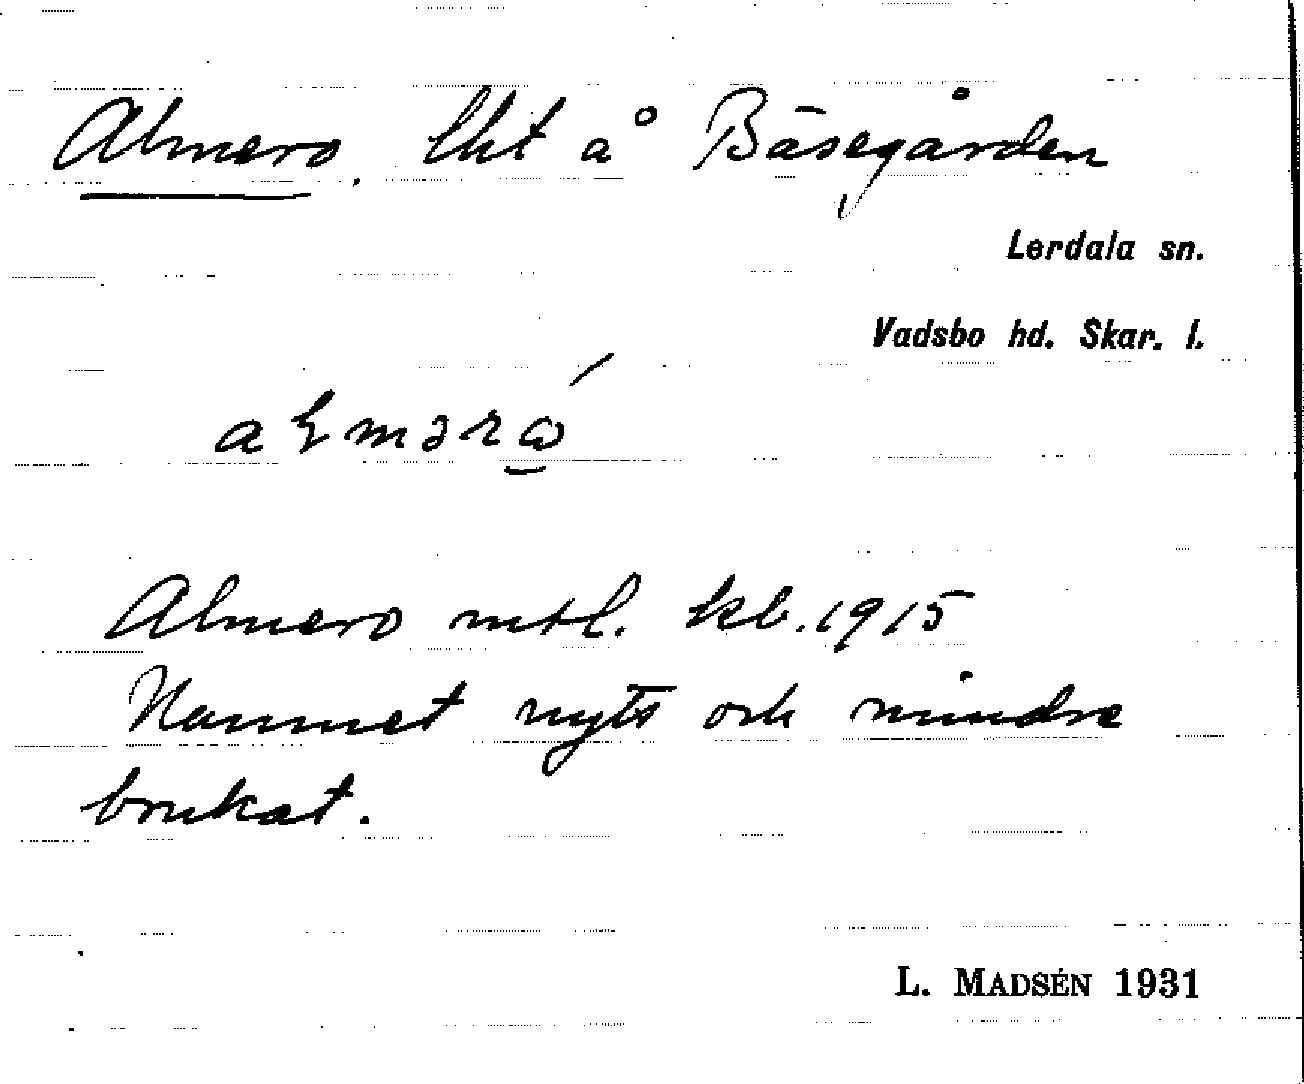 Almero, lht å Båsegården
Lerdala sn.
Vadsbo hd. Skar. l.
Almero mtl. kb. 1915
Namnet nytt och mindre
brukat.
L. MADSÉN 1931